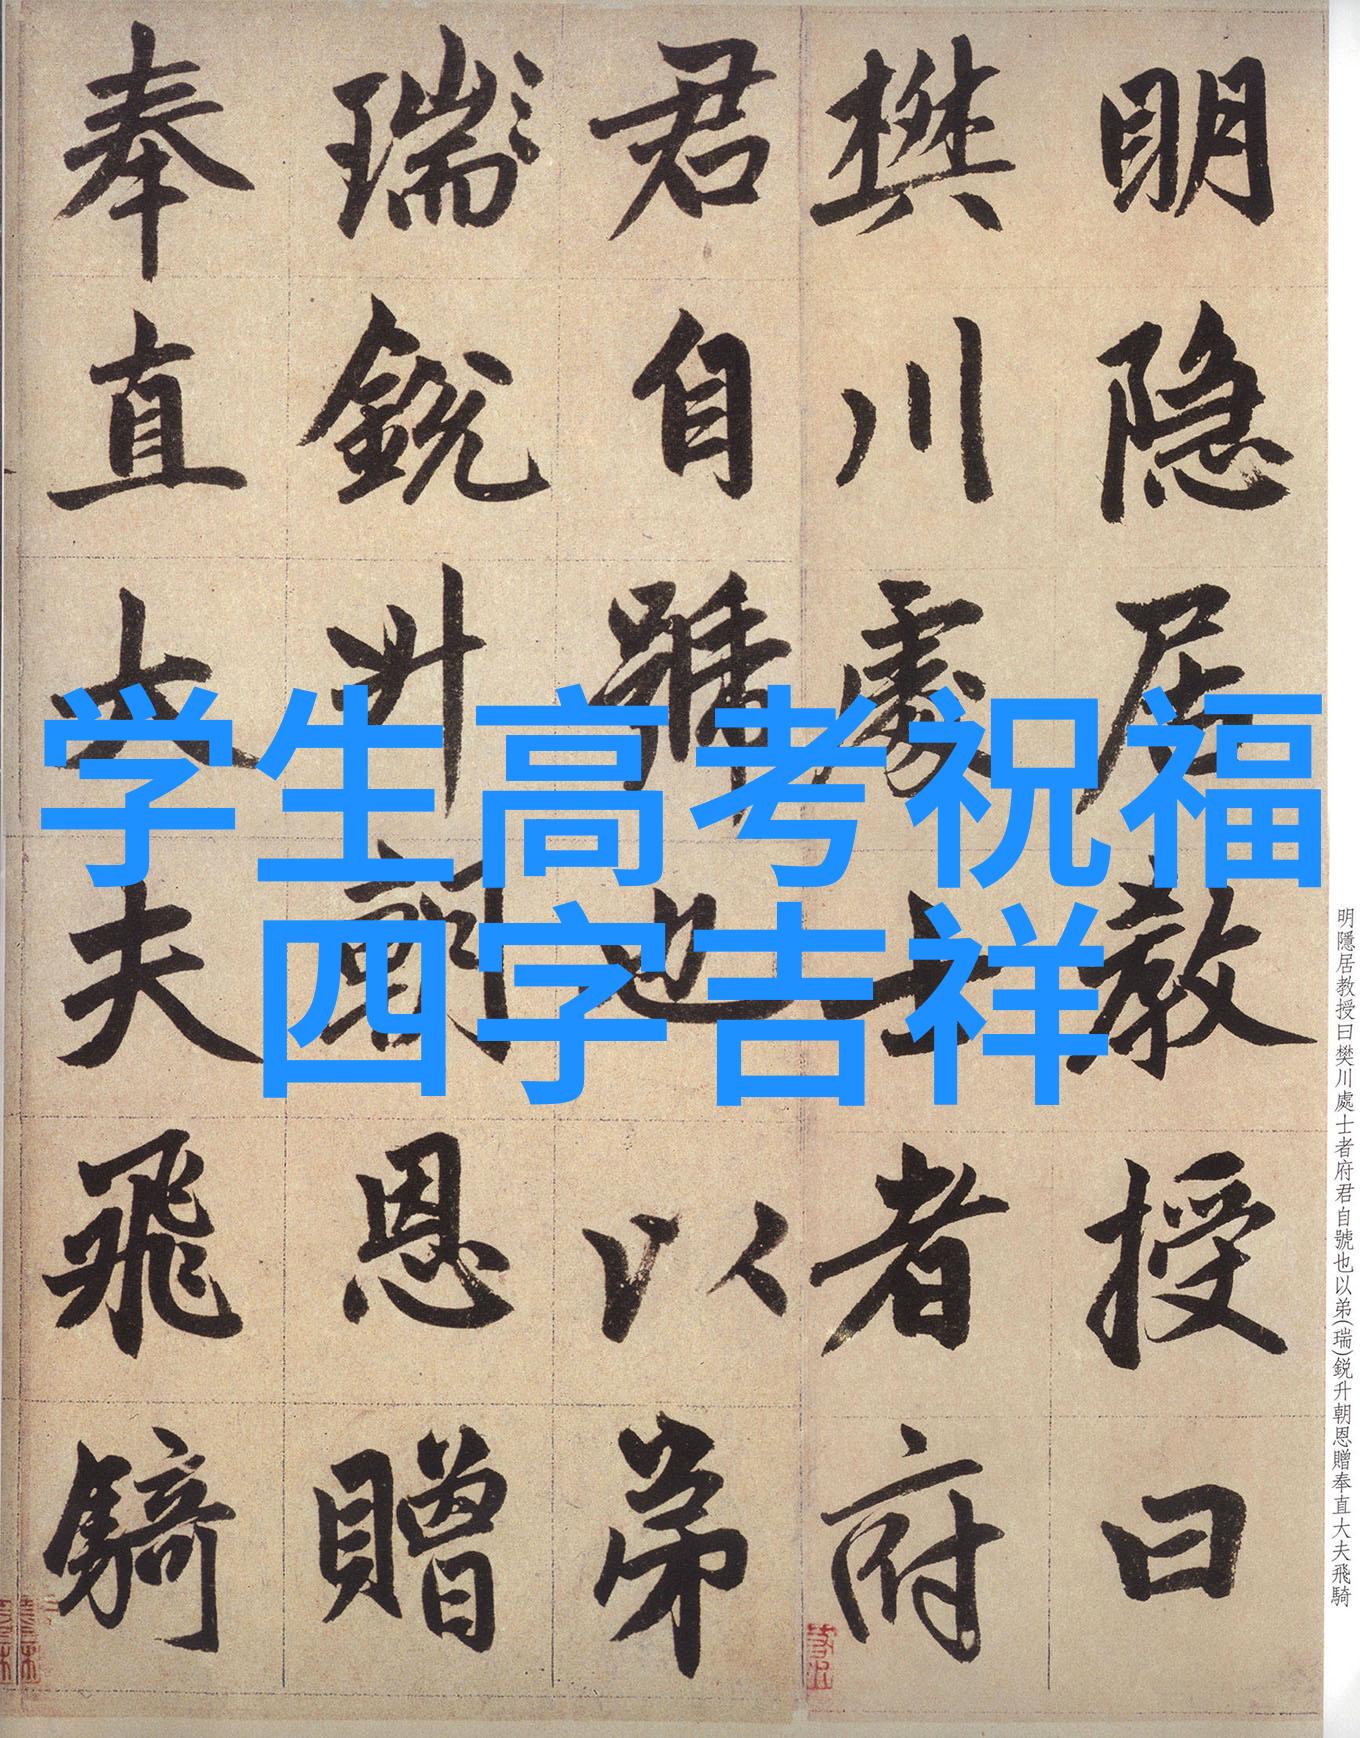 明隐居教授曰
樊川處士者府
君自號也以弟
瑞銳升朝恩贈
奉直大夫飛騎
学生高考祝福
四字吉祥
明隱居教授曰樊川處士者府君自號也以弟(瑞)鋭升朝恩贈奉直大夫飛騎